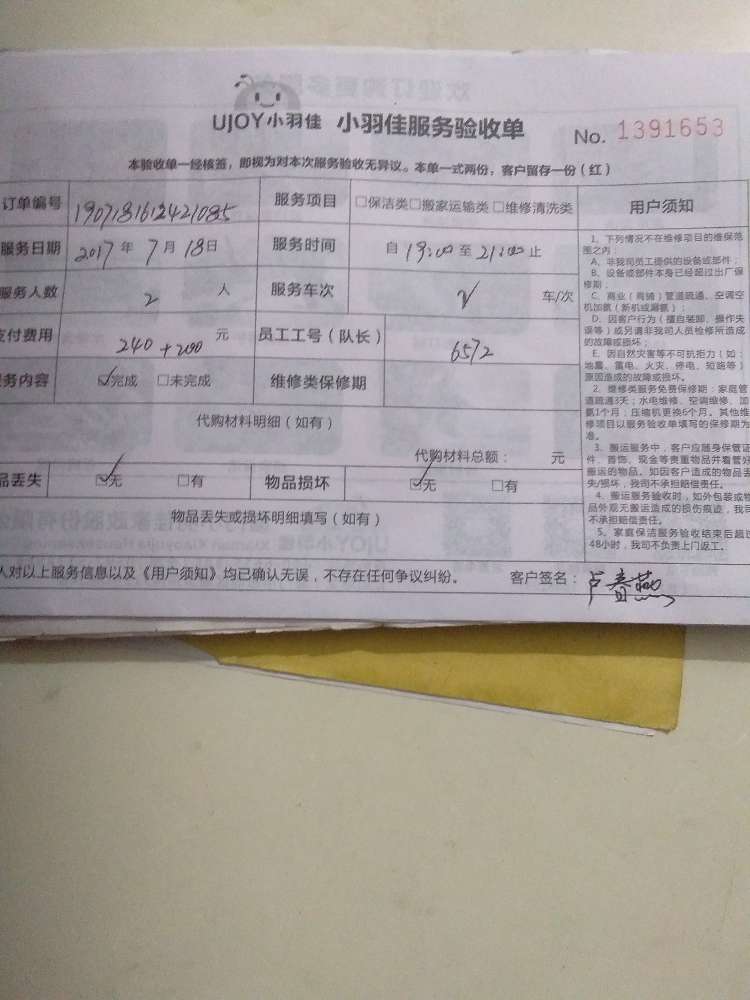 UJOY小羽佳 小羽佳服务验收单 No. 1391653
本验收单一经核签，即视为对本次服务验收无异议。本单一式两份，客户留存一份（红）
订单编号 1907181612421085 服务项目 □保洁类□搬家运输类□维修清洗类 用户须知
服务日期 2017年7月18日 服务时间 自19:00至21:00止
服务人数 2 人 服务车次 车/次
支付费用 240+200 元 员工工号（队长） 6572
务内容 ☑完成 □未完成 维修类保修期
代购材料明细（如有）
代购材料总额： 元
品丢失 ☑无 □有 物品损坏 ☑无 □有
物品丢失或损坏明细填写（如有）
人对以上服务信息以及《用户须知》均已确认无误，不存在任何争议纠纷。 客户签名：卢春燕
1、下列情况不在维修项目的维保范
围之内：
A、非我司员工提供的设备或部件；
B、设备或部件本身已经超过出厂保
修期；
C、商业（商铺）管道疏通、空调空
机加氨（新机或漏氨）；
D、因客户行为（擅自装卸、操作失
误等）或另请非我司人员检修所造成
的故障或损坏；
E、因自然灾害等不可机拒力（如：
地震、雷电、火灾、停电、短路等）
原因造成的故障或损坏。
2、维修类服务免费保修期：家庭管
道疏通3天；水电维修、空调维修、加
氨1个月；压缩机更换6个月。其他维
修项目以服务验收单填写的保修期为
准。
3、搬运服务中，客户应随身保管证
件、首饰、现金等贵重物品并看管好
搬运的物品。如因客户造成的物品丢
失/损坏，我司不承担赔偿责任。
4、搬运服务验收时，如外包装或物
品外观无搬运造成的损伤痕迹，我司
不承担赔偿责任。
5、家庭保洁服务验收结束后超过
48小时，我司不负责上门返工。